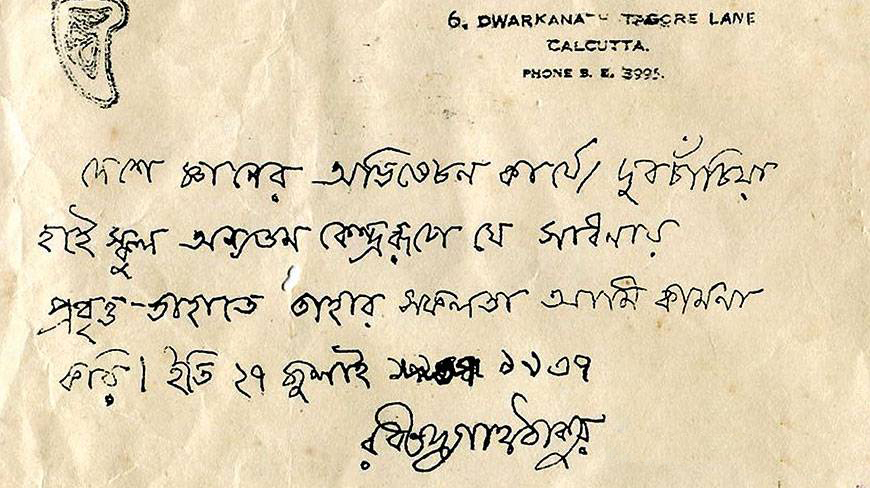 6, DWARKANATH TAGORE LANE
CALCUTTA.
PHONE B. B. 3995.
দেশে জ্ঞানের অভিসেচন কার্যে দুবচাঁচিয়া
হাই স্কুল অন্যতম কেন্দ্ররূপে যে সাধনায়
প্রবৃত্ত তাহাতে তাহার সফলতা আমি কামনা
করি। ইতি ২৭ জুলাই ১৯৩৭
রবীন্দ্রনাথ ঠাকুর